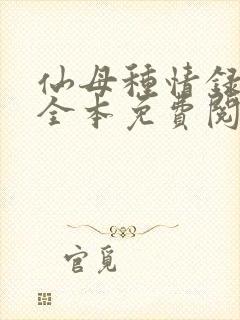 仙母種情録
全本免費閱
官覓